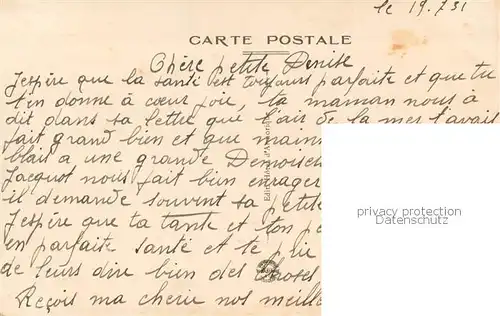 le 19.7 31
CARTE POSTALE
Chère petite Denise
J'espère que la santé est toujours parfaite et que tu
t'en donne à cœur joie, ta maman nous a
dit dans sa lettre que l'air de la mer t'avais
fait grand bien et que main
blais a une grande Demoise
Jacquot nous fait bien enrager
il demande souvent sa petite
J'espère que ta tante et ton
en parfaite santé et te prie
de leurs dire bien des choses
Reçois ma cherie nos meille
privacy protection
Datenschutz